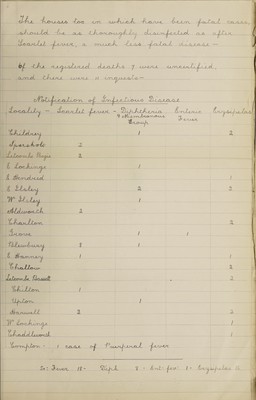 The houses too in which have been fatal cases,
should be as thoroughly disinfected as after
Scarlet fever, a much less fatal disease —
Of the registered deaths 7 were uncertified,
and there were 2 inquests —
Notification of Infectious Disease
Locality — Scarlet fever — Diphtheria Enteric Erysipelas
& Membranous Fever
Croup
Childrey 1 2
Sparsholt 2
Letcombe Regis 2
E Lockinge 1
E Hendred 1
E Ilsley 2 2
W Ilsley 1
Aldworth 2
Charlton 2
Grove 1 1
Blewbury 1
E Hanney 1 1
Challow 2
Letcombe Bassett 2
Chilton 1
Upton 1
Harwell 2 2
W. Lockinge 1
Chaddleworth 1
Compton 1 case of Puerperal fever
Sc: Fever 15 - Diph 8 - Ent: fev: 1 - Erysipelas